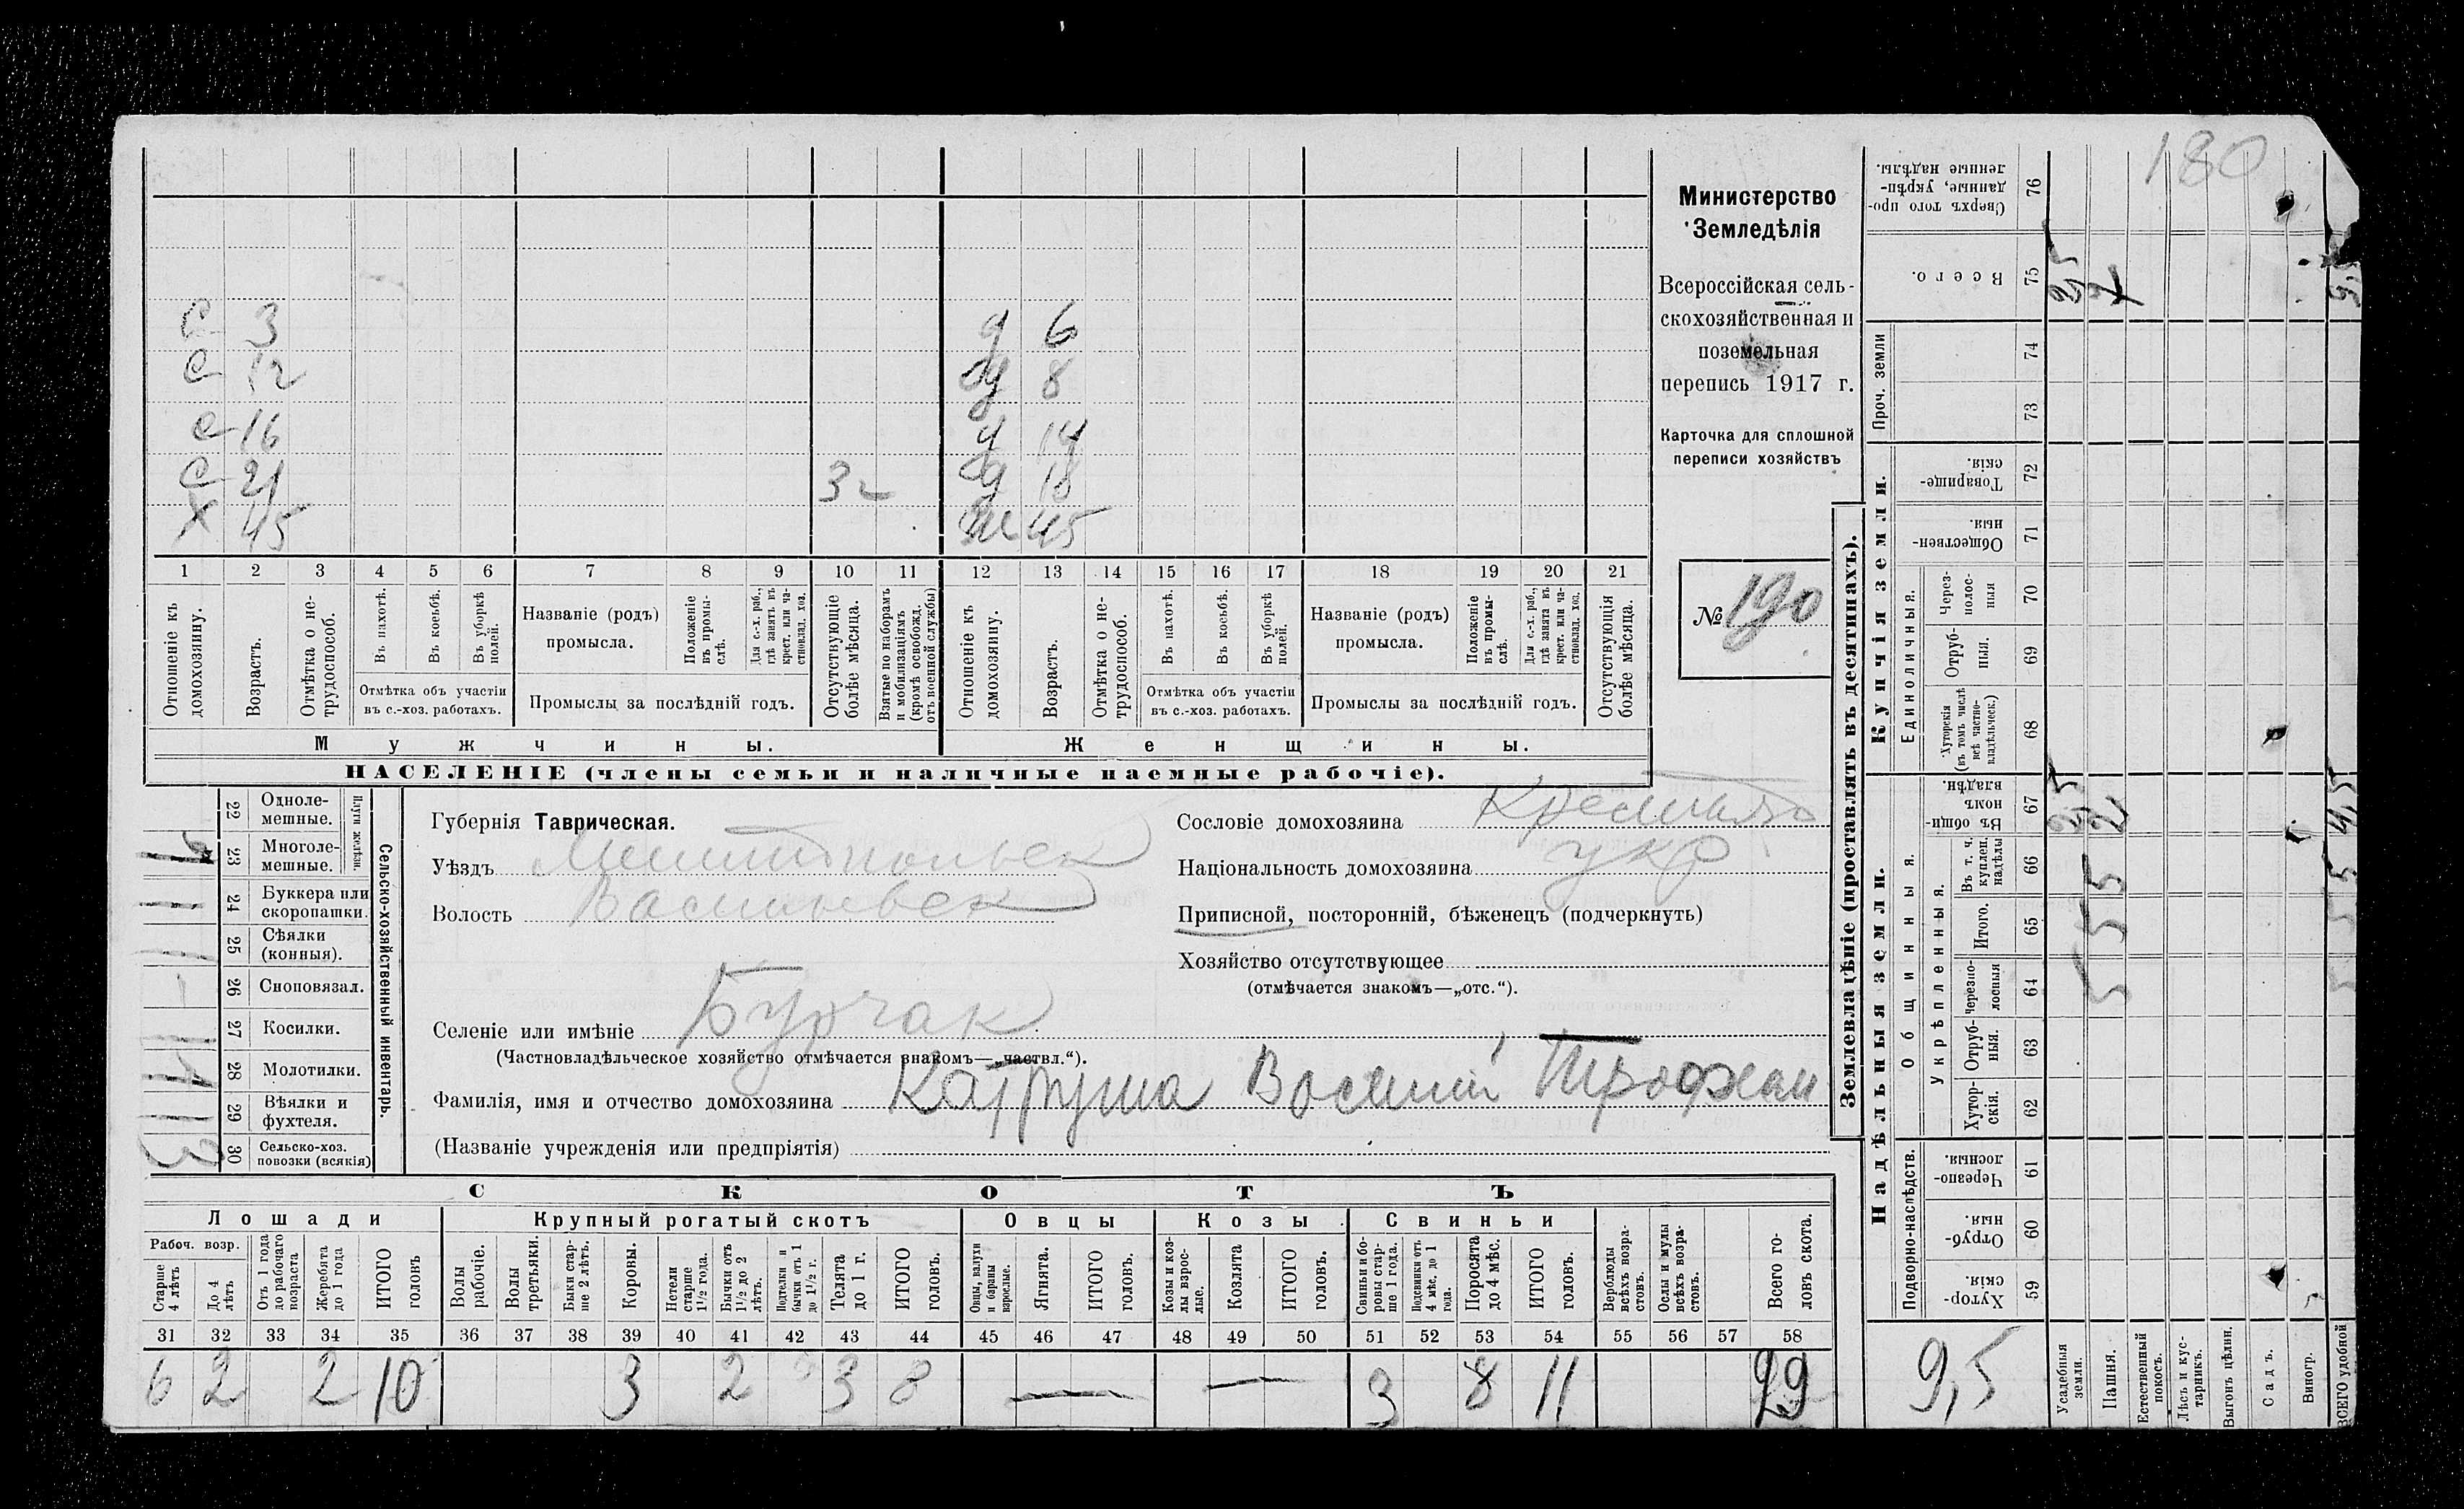 180
Министерство
Земледѣлія
Всероссійская сель-
скохозяйственная и
поземельная
перепись 1917 г.
Карточка для сплошной
переписи хозяйствъ
№ 190
с 3 д 6
с 12 д 8
с 16 д 14
с 21 32 д 18
х 45 ж 45
1 2 3 4 5 6 7 8 9 10 11 12 13 14 15 16 17 18 19 20 21
Отношеніе къ домохозяину.
Возрастъ.
Отмѣтка о не-трудоспособ.
Въ пахотѣ.
Въ косьбѣ.
Въ уборкѣ полей.
Отмѣтка объ участіи
въ с.-хоз. работахъ.
Названіе (родъ)
промысла.
Положеніе въ промы-слѣ.
Для с.-х. раб., гдѣ занятъ въ крест. или ча-стновлад. хоз.
Промыслы за послѣдній годъ.
Отсутствующіе болѣе мѣсяца.
Взятые по наборамъ и мобилизаціямъ (кромѣ освобожд. отъ военной службы)
Отношеніе къ домохозяину.
Возрастъ.
Отмѣтка о не-трудоспособ.
Въ пахотѣ.
Въ косьбѣ.
Въ уборкѣ полей.
Отмѣтка объ участіи
въ с.-хоз. работахъ.
Названіе (родъ)
промысла.
Положеніе въ промы-слѣ.
Для с.-х. раб., гдѣ занята въ крест. или ча-стновлад. хоз.
Промыслы за послѣдній годъ.
Отсутствующія болѣе мѣсяца.
Мужчины.
Женщины.
НАСЕЛЕНІЕ (члены семьи и наличные наемные рабочіе).
Сельско-хозяйственный инвентарь.
Плуги желѣзн.
22 Одноле-мешные.
23 Многоле-мешные.
24 Буккера или скоропашки.
25 Сѣялки (конныя).
26 Сноповязал.
27 Косилки.
28 Молотилки.
29 Вѣялки и фухтеля.
30 Сельско-хоз. повозки (всякія)
3
Губернія Таврическая.
Уѣздъ Мелитопольск
Волость Васильевск
Селеніе или имѣніе Бурчак
(Частновладѣльческое хозяйство отмѣчается знакомъ—„частвл.“).
Фамилія, имя и отчество домохозяина Катруша Василий Трофим
(Названіе учрежденія или предпріятія)
Сословіе домохозяина
Національность домохозяина укр
Приписной, посторонній, бѣженецъ (подчеркнуть)
Хозяйство отсутствующее
(отмѣчается знакомъ—„отс.“).
СКОТЪ
Лошади
Крупный рогатый скотъ
Овцы
Козы
Свиньи
Рабоч. возр.
Старше 4 лѣтъ
До 4 лѣтъ
Отъ 1 года до рабочаго возраста
Жеребята до 1 года
ИТОГО головъ
Волы рабочіе.
Волы третьяки.
Быки стар-ше 2 лѣтъ.
Коровы.
Нетели старше 1½ года.
Бычки отъ 1½ до 2 лѣтъ.
Подтелки и бычки отъ 1 до 1½ г.
Телята до 1 г.
ИТОГО головъ.
Овцы, валухи и бараны взрослые.
Ягнята.
ИТОГО головъ.
Козы и коз-лы взрос-лые.
Козлята
ИТОГО головъ.
Свиньи и бо-ровы стар-ше 1 года.
Подсвинки отъ 4 мѣс. до 1 года.
Поросята до 4 мѣс.
ИТОГО головъ.
Верблюды всѣхъ возра-стовъ.
Ослы и мулы всѣхъ возра-стовъ.
Всего го-ловъ скота.
31 32 33 34 35 36 37 38 39 40 41 42 43 44 45 46 47 48 49 50 51 52 53 54 55 56 57 58
6 2 2 10 3 2 3 8 — — 3 8 11 29
Землевладѣніе (проставлять въ десятинахъ).
Надѣльныя земли.
Купчія земли.
Проч. земли
Подворно-наслѣдств.
Общинныя.
Укрѣпленныя.
Единоличныя.
59 Хутор-скія.
60 Отруб-ныя.
61 Черезпо-лосныя.
62 Хутор-скія.
63 Отруб-ныя.
64 Черезпо-лосныя
65 Итого.
66 Въ т. ч. куплен. надѣлы
67 Въ общи-номъ владѣн.
68 Хуторскія (въ томъ числѣ всѣ частно-владѣльческ.)
69 Отруб-ныя.
70 Через-полос-ныя
71 Обществен-ныя.
72 Товарище-скія.
73
74
75 Всего.
76 Сверхъ того про-данные, укрѣп-ленные надѣлы.
9,5
Усадебныя земли.
Пашня.
5 5 5 2
Естественный покосъ.
Лѣсъ и кус-тарникъ.
Выгонъ цѣлин.
Садъ.
Виногр.
ВСЕГО удобной
5 5 5 4,5